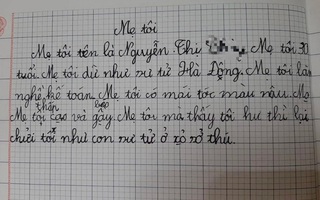 Mẹ tôi
Mẹ tôi tên là Nguyễn Thị Mẹ tôi 30
tuổi. Mẹ tôi dữ như sư tử Hà Đông. Mẹ tôi làm
nghề kế toán. Mẹ tôi có mái tóc màu nâu. Mẹ
thân
Mẹ tôi cao và gầy. Mẹ tôi mà thấy tôi hư thì lại
chửi tôi như con sư tử ở sở thú.